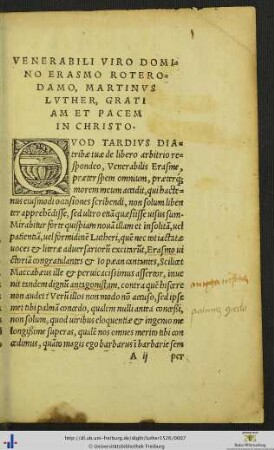 VENERABILI VIRO DOMI
NO ERASMO ROTERO-
DAMO, MARTINVS
LVTHER, GRATI
AM ET PACEM
IN CHRISTO.
QVOD TARDIVS DIA
tribæ tuæ de libero arbitrio re
spondeo, Venerabilis Erasme,
præter spem omnium, præterq́;
morem meum accidit, qui hacte
nus eiusmodi occasiones scribendi, non solum liben
ter apprehēdisse, sed ultro etiā quæsisse uisus sum.
Mirabitur forte quispiam nouā illam et insolitā, uel
patientiā, uel formidinē Lutheri, quē nec tot iactatæ
uoces et literæ aduersariorū excitarint, Erasmo ui
ctoriā congratulantes et Io pæan cantantes, Scilicet
Maccabæus ille et peruicacissimus assertor, inue
nit tandem dignū antagonistam, contra quē hiscere
non audet? Verū illos non modo nō accuso, sed ipse
met tibi palmā concedo, qualem nulli antea concessi,
non solum, quod uiribus eloquentiæ et ingenio me
longissime superas, qualē nos omnes merito tibi con
cedimus, quāto magis ego barbarus ī barbarie sem
A ij per
palmam
http://dl.ub.uni-freiburg.de/diglit/luther1526/0007
© Universitätsbibliothek Freiburg
Baden-Württemberg